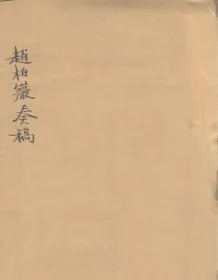 趙柏巖奏稿